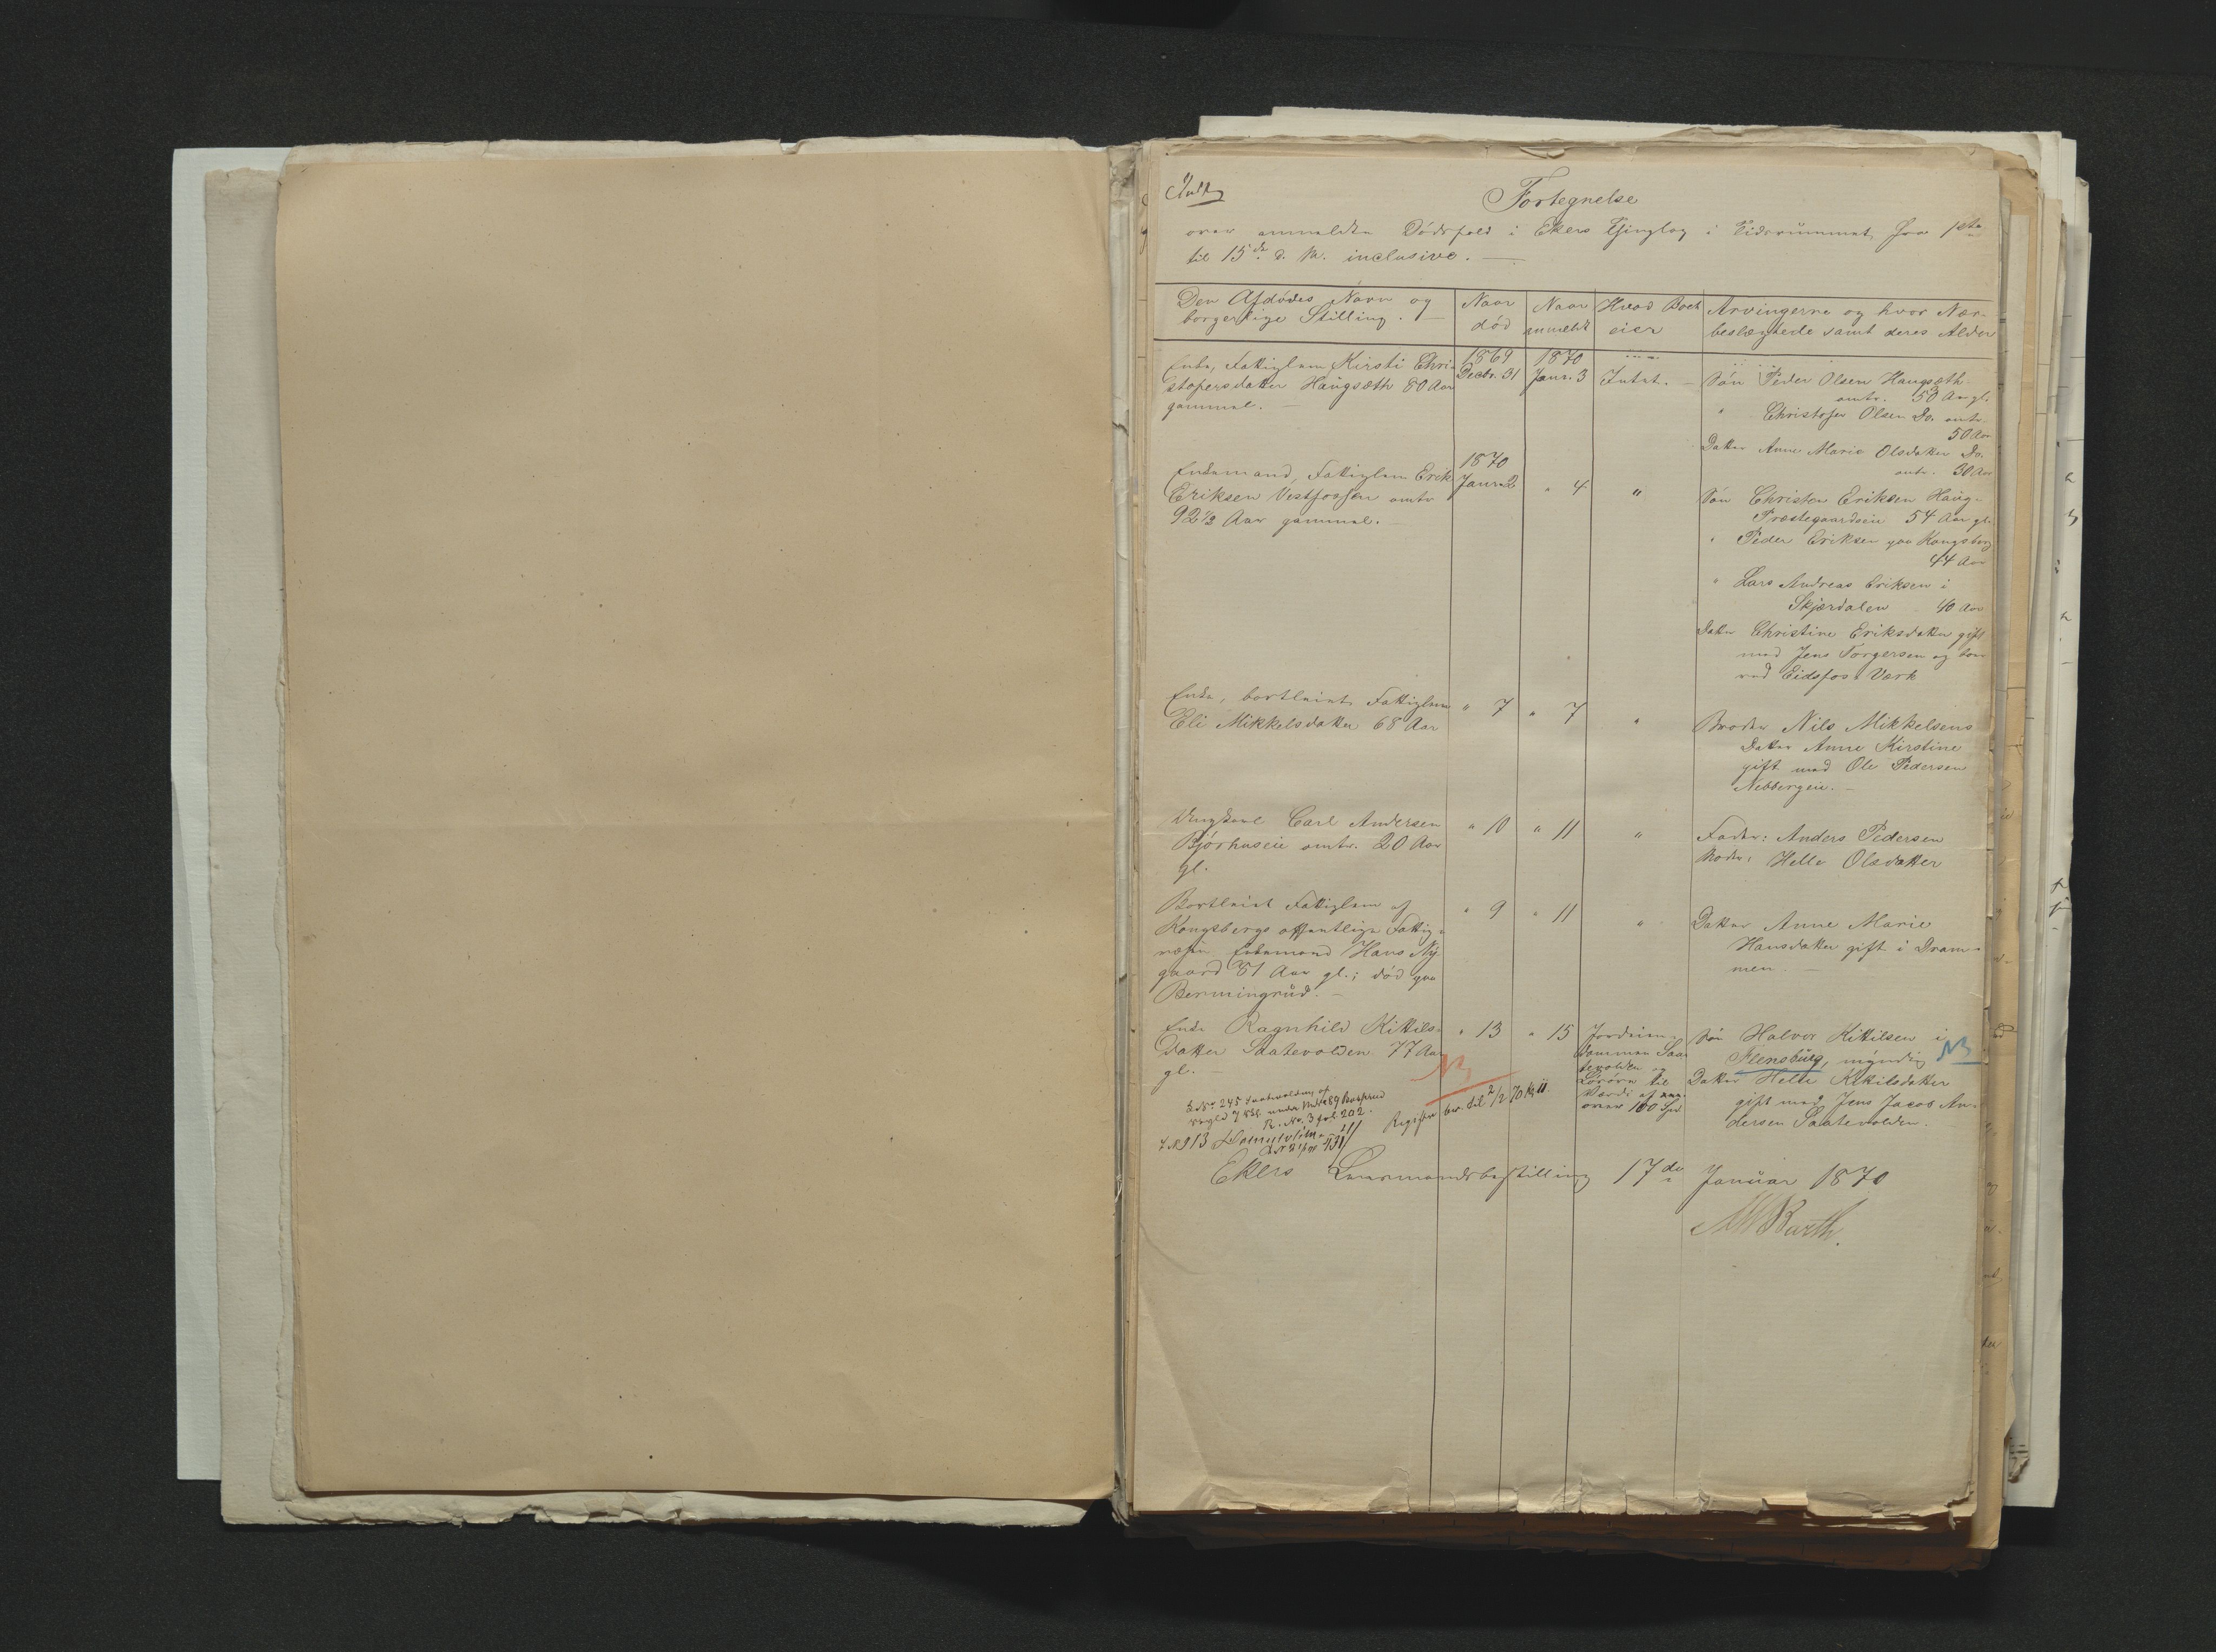 Fortegnelse
over anmeldte Dödsfald i Ekers Thinglag i Tidsrummet fra 1ste
til 15de d. M. inclusive. —
Den Afdödes Navn og
borgerlige Stilling. —
Naar
död
Naar
anmeldt
Hvad Boet
eier
Arvingerne og hvor Nær-
beslægtede samt deres Alder
Enke, Fattiglem Kirsti Chri-
stofersdatter Haugsæth 80 Aar
gammel. —
1869
Decbr. 31
1870
Janr. 3
Intet. —
Sön Peder Olsen Haugsæth
omtr. 50 Aar gl.
" Christofer Olsen Do. omtr.
50 Aar
Datter Anne Marie Olsdatter Do.
omtr. 30 Aar
Enkemand, Fattiglem Erik
Eriksen Vestfossen omtr
92½ Aar gammel. —
1870
Janr. 2
" 4
"
Sön Christen Eriksen Haug-
Præstegaardseie 54 Aar gl.
" Peder Eriksen paa Kongsberg
44 Aar
" Lars Andreas Eriksen i
Skjærdalen 40 Aar
Datter Christine Eriksdatter gift
med Jens Torgersen og boer
ved Eidsfos Værk
Enke, bortleiet Fattiglem
Eli Mikkelsdatter 68 Aar
" 7
" 7
"
Broder Nils Mikkelsens
Datter Anne Kirstine
gift med Ole Pedersen
Nebbergeie. —
Ungkarl Carl Andersen
Björhuseie omtr. 20 Aar
gl.
" 10
" 11
"
Fader: Anders Pedersen
Moder: Helle Olsdatter
Bortleiet Fattiglem af
Kongsbergs offentlige Fattig-
væsen Enkemand Hans Ny-
gaard 81 Aar gl.; död paa
Bermingrud. —
" 9
" 11
"
Datter Anne Marie
Hansdatter gift i Dram-
men. —
Enke Ragnhild Kittils-
datter Saatevolden 77 Aar
gl. —
" 13
" 15
Jordeien-
dommen Saa-
tevolden og
Lösöre til
Værdi af
over 100 Spd
Sön Halvor Kittilsen i
Flensburg, myndig
NB
Datter Helle Kittilsdatter
gift med Jens Jacob An-
dersen Saatevolden. —
NB
L No 245 Saatevolden af
under
R. No. 3 fol. 202.
til 2/2 70 Kl 11.
Ekers Lensmandsbestilling 17de Januar 1870
Barth.